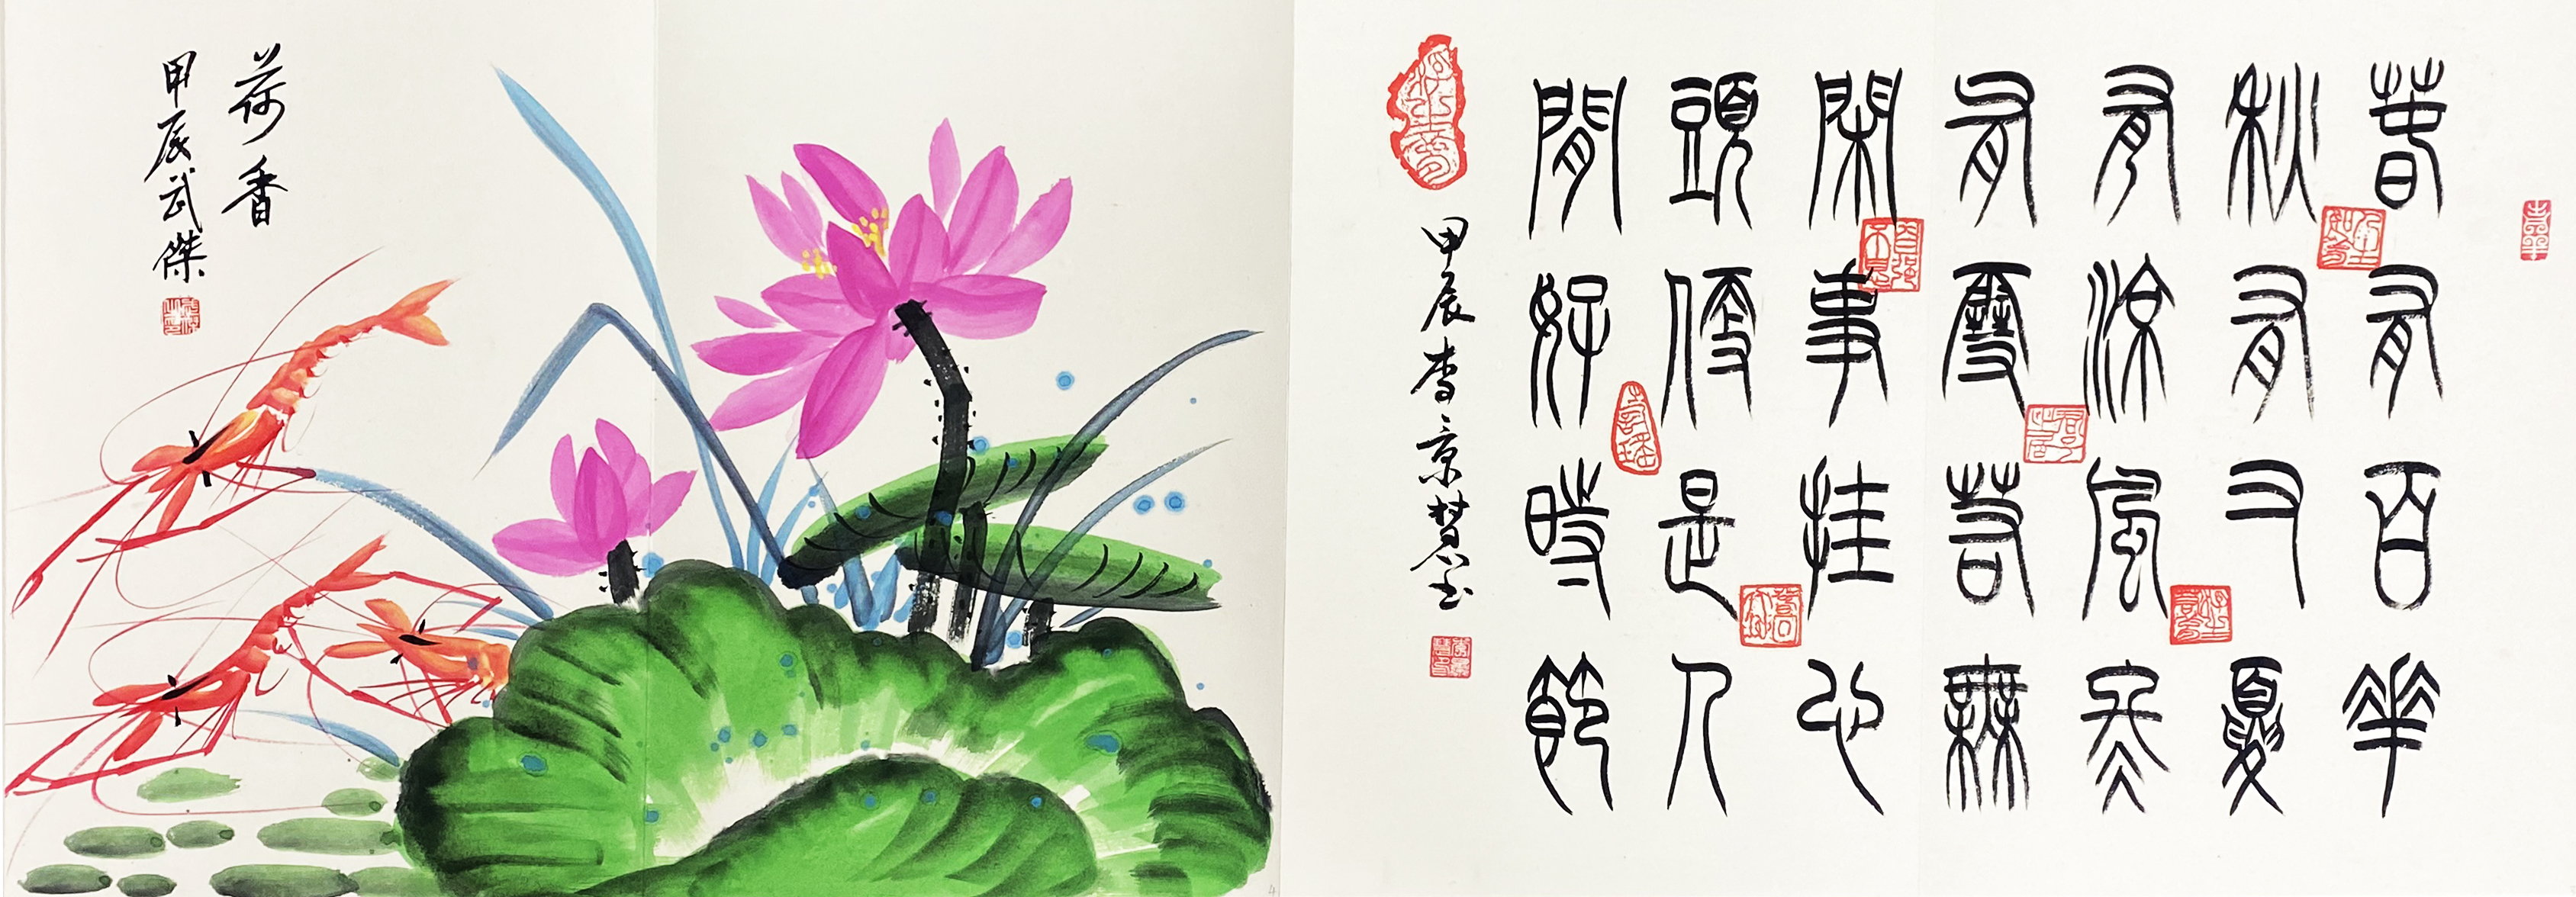 春有百華
秋有月夏
有涼風冬
有雪若無
閑事挂心
頭便是人
閒好時節
甲辰李景慧书
荷香
甲辰武傑